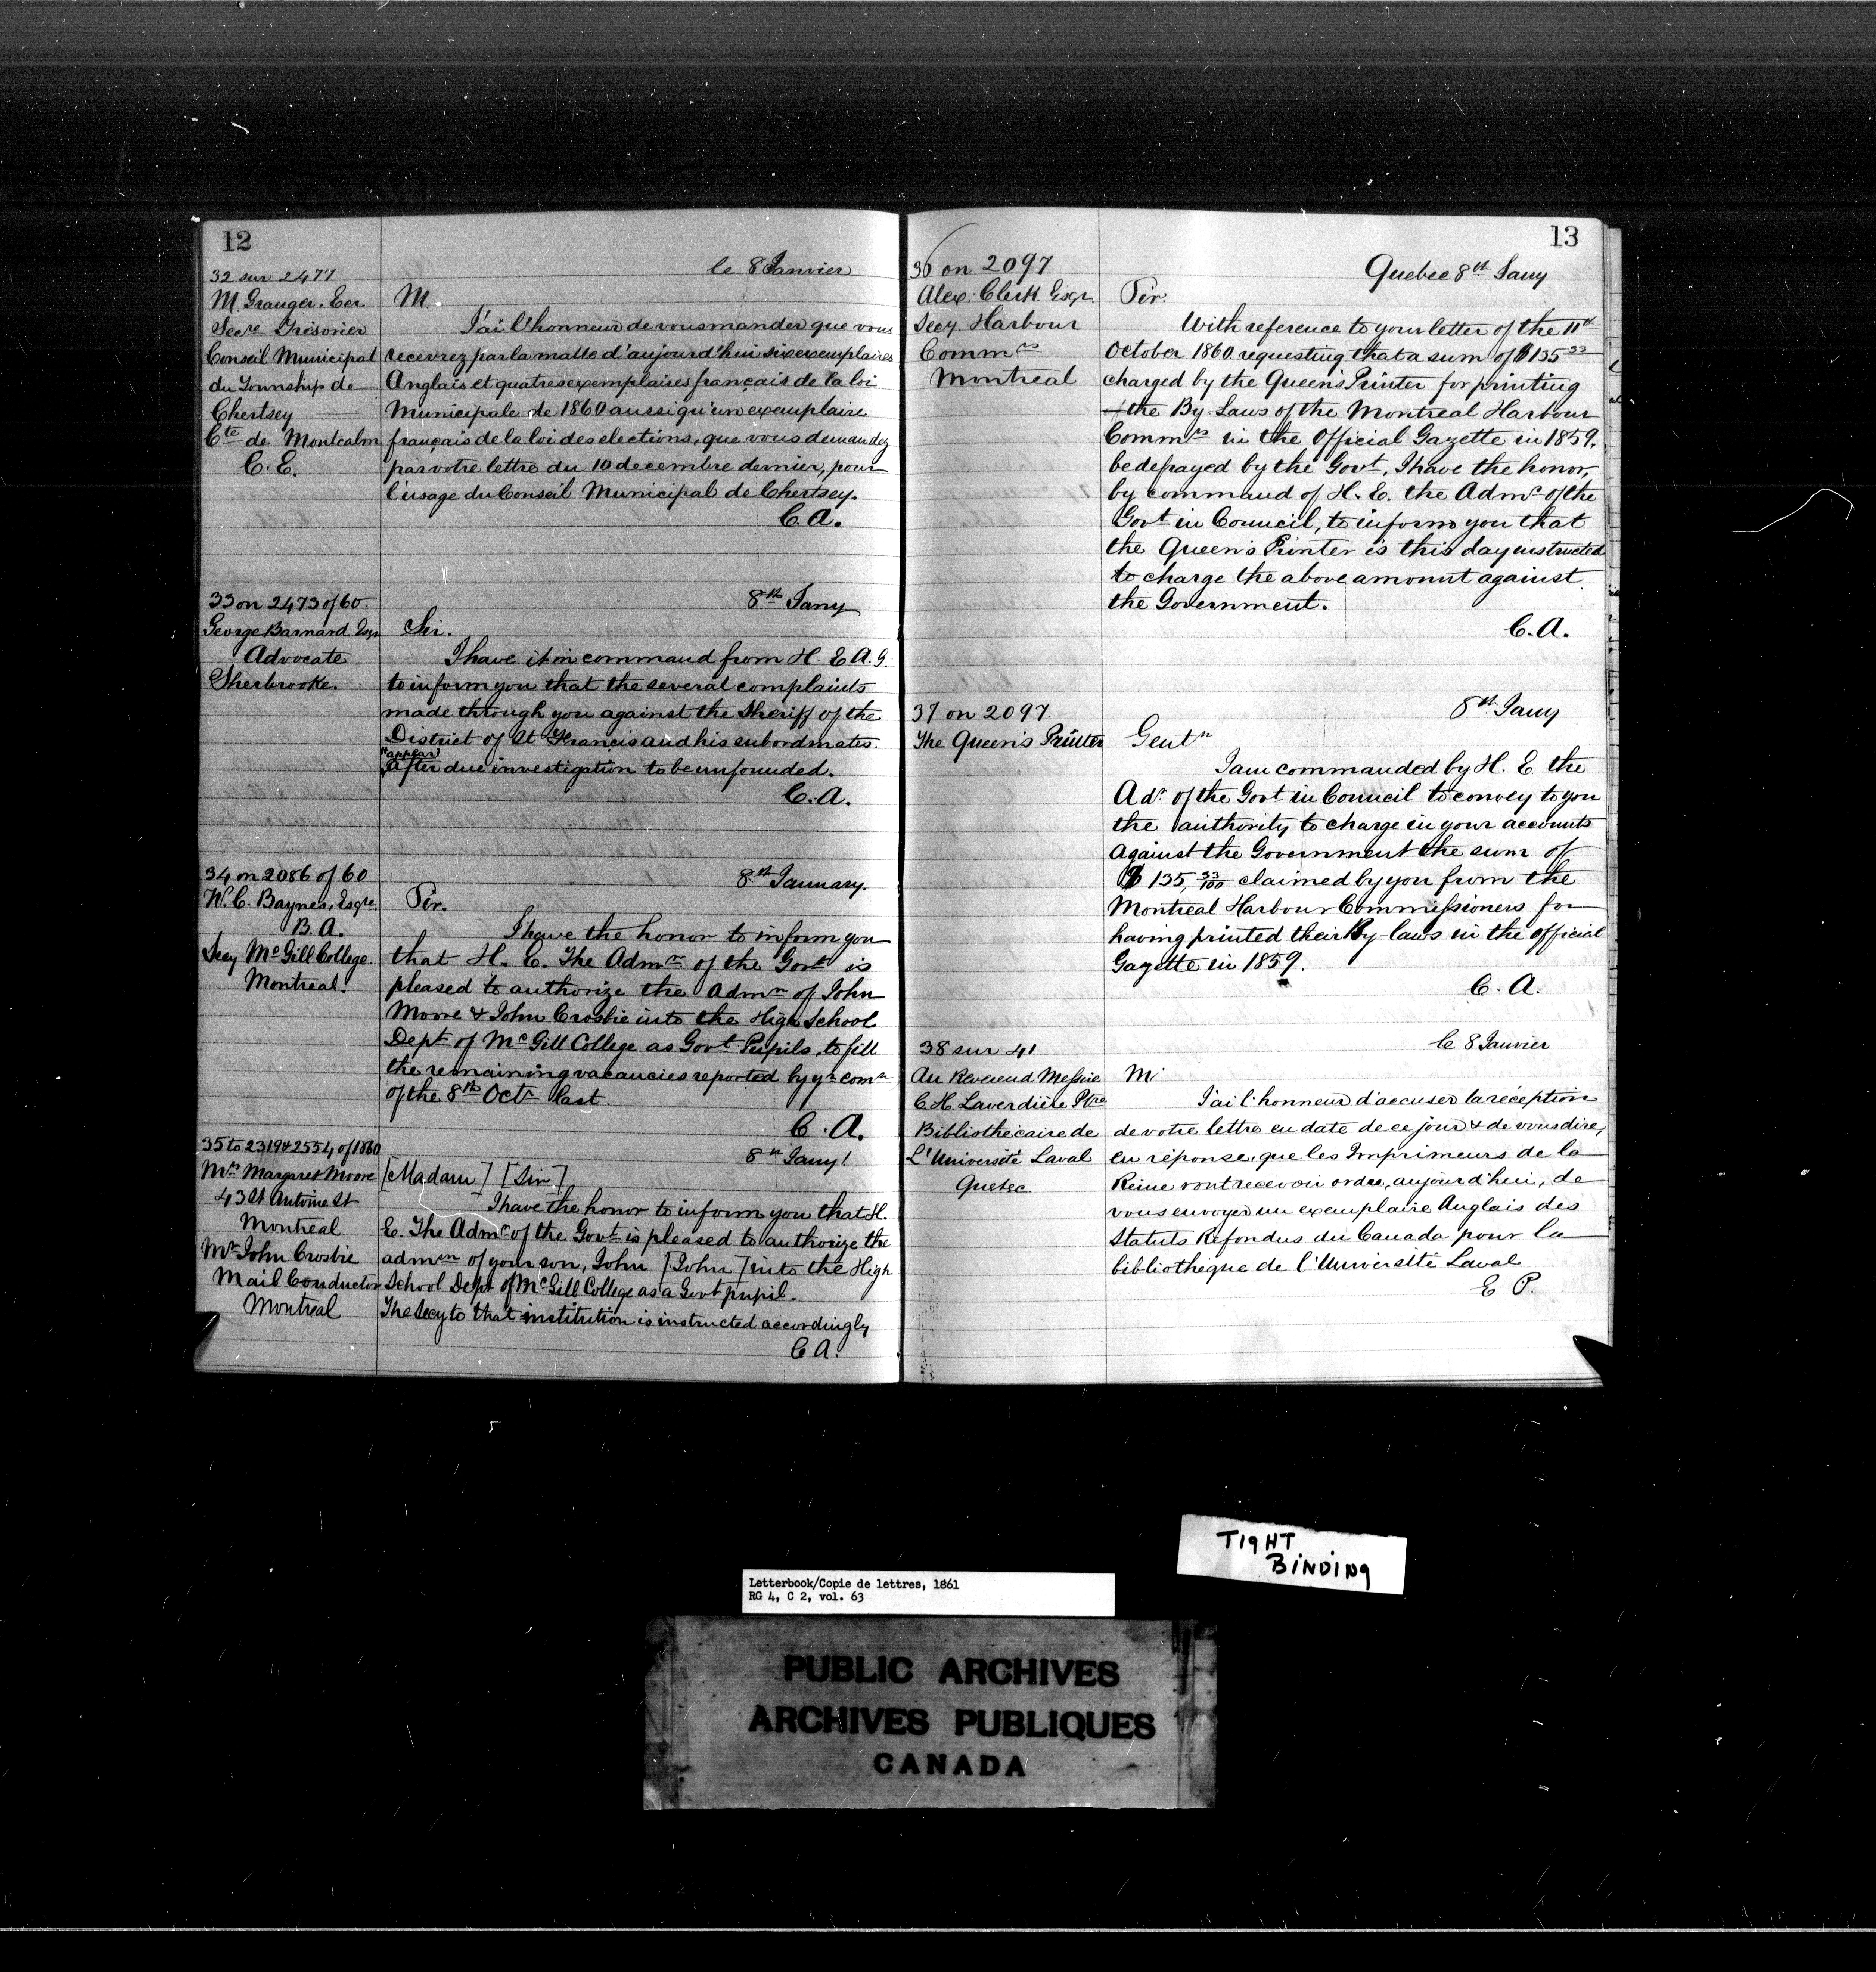 12
32 sur 2477
le 8 Janvier
M. Granger, Ecr
Secre Trésorier
Conseil Municipal
du Township de
Chertsey
Cte de Montcalm
C. E.
M.
J'ai l'honneur de vous mander que vous
recevrez par la malle d'aujourd'hui six exemplaires
Anglais et quatres exemplaires français de la loi
Municipale de 1860 aussi qu'un exemplaire
français de la loi des elections, que vous demandez
par votre lettre du 10 decembre dernier, pour
l'usage du Conseil Municipal de Chertsey.
C. A.
33 on 2473 of 60
8th Jany
George Barnard Esqr
Advocate
Sherbrooke.
Sir.
I have it in command from H. E A. G.
to inform you that the several complaints
made through you against the Sheriff of the
District of St Francis and his subordinates.
"appear"
after due investigation to be unfounded.
C. A.
34 on 2086 of 60
8th January.
W. C. Baynes, Esqre
B. A.
Secy McGill College
Montreal.
Sir.
I have the honor to inform you
that H. E. The Admr of the Govt is
pleased to authorize the admn of John
Moore & John Crosbie into the High School
Dept of McGill College as Govt Pupils, to fill
the remaining vacancies reported by yr comn
of the 8th Octr last.
C. A.
35 to 2319 & 2554, of 1860
8th Jany!
Mrs Margaret Moore
43 St Antoine St
Montreal
Mr John Crosbie
Mail Conductor
Montreal
[Madam] [Sir]
I have the honor to inform you that H.
E. The Admr of the Govt is pleased to authorize the
admn of your son, John [John] into the High
School Dept of McGill College as a Govt pupil.
The Secy to that institution is instructed accordingly
C A.
13
36 on 2097
Quebec 8th Jany
Alex: Clerk Esqr.
Secy. Harbour
Commrs
Montreal
Sir.
With reference to your letter of the 11th
October 1860 requesting that a sum of $135 33
charged by the Queen's Printer for printing
the By Laws of the Montreal Harbour
Commrs in the Official Gazette in 1859.
be defrayed by the Govt, I have the honor,
by command of H. E. the Admr of the
Govt in Council, to inform you that
the Queen's Printer is this day instructed
to charge the above amount against
the Government.
C. A.
37 on 2097
8th Jany
The Queen's Printer
Gentn
I am commanded by H. E the
Adr. of the Govt in Council to convey to you
the authority to charge in your accounts
against the Government the sum of
$ 135, 33/100 claimed by you from the
Montreal Harbour Commissioners for
having printed their By-laws in the official
Gazette in 1859.
C. A.
38 sur 41
le 8 Janvier
Au Reverend Messire
C H Laverdière Ptre
Bibliothécaire de
L'Université Laval
Quebec
Mr
J'ai l'honneur d'accuser la réception
de votre lettre en date de ce jour & de vous dire,
en réponse, que les Imprimeurs de la
Reine vont recevoir ordre, aujourd'hui, de
vous envoyer un exemplaire Anglais des
Statuts Refondus du Canada pour la
bibliothèque de l'Université Laval
E P.
TIGHT
BINDING
Letterbook/Copie de lettres, 1861
RG 4, C 2, vol. 63
PUBLIC ARCHIVES
ARCHIVES PUBLIQUES
CANADA